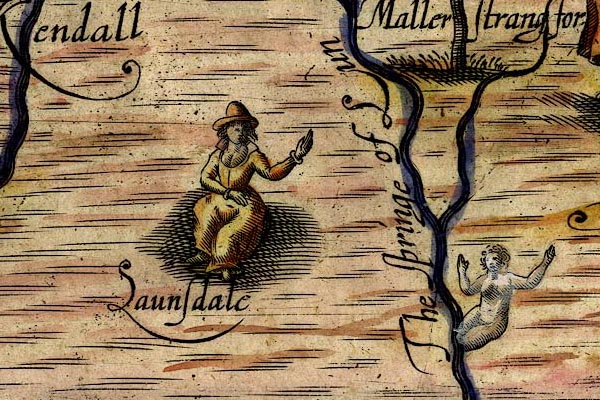 Kendall
Maller ſtrang for
The ſpringe of Lun
Launſdale